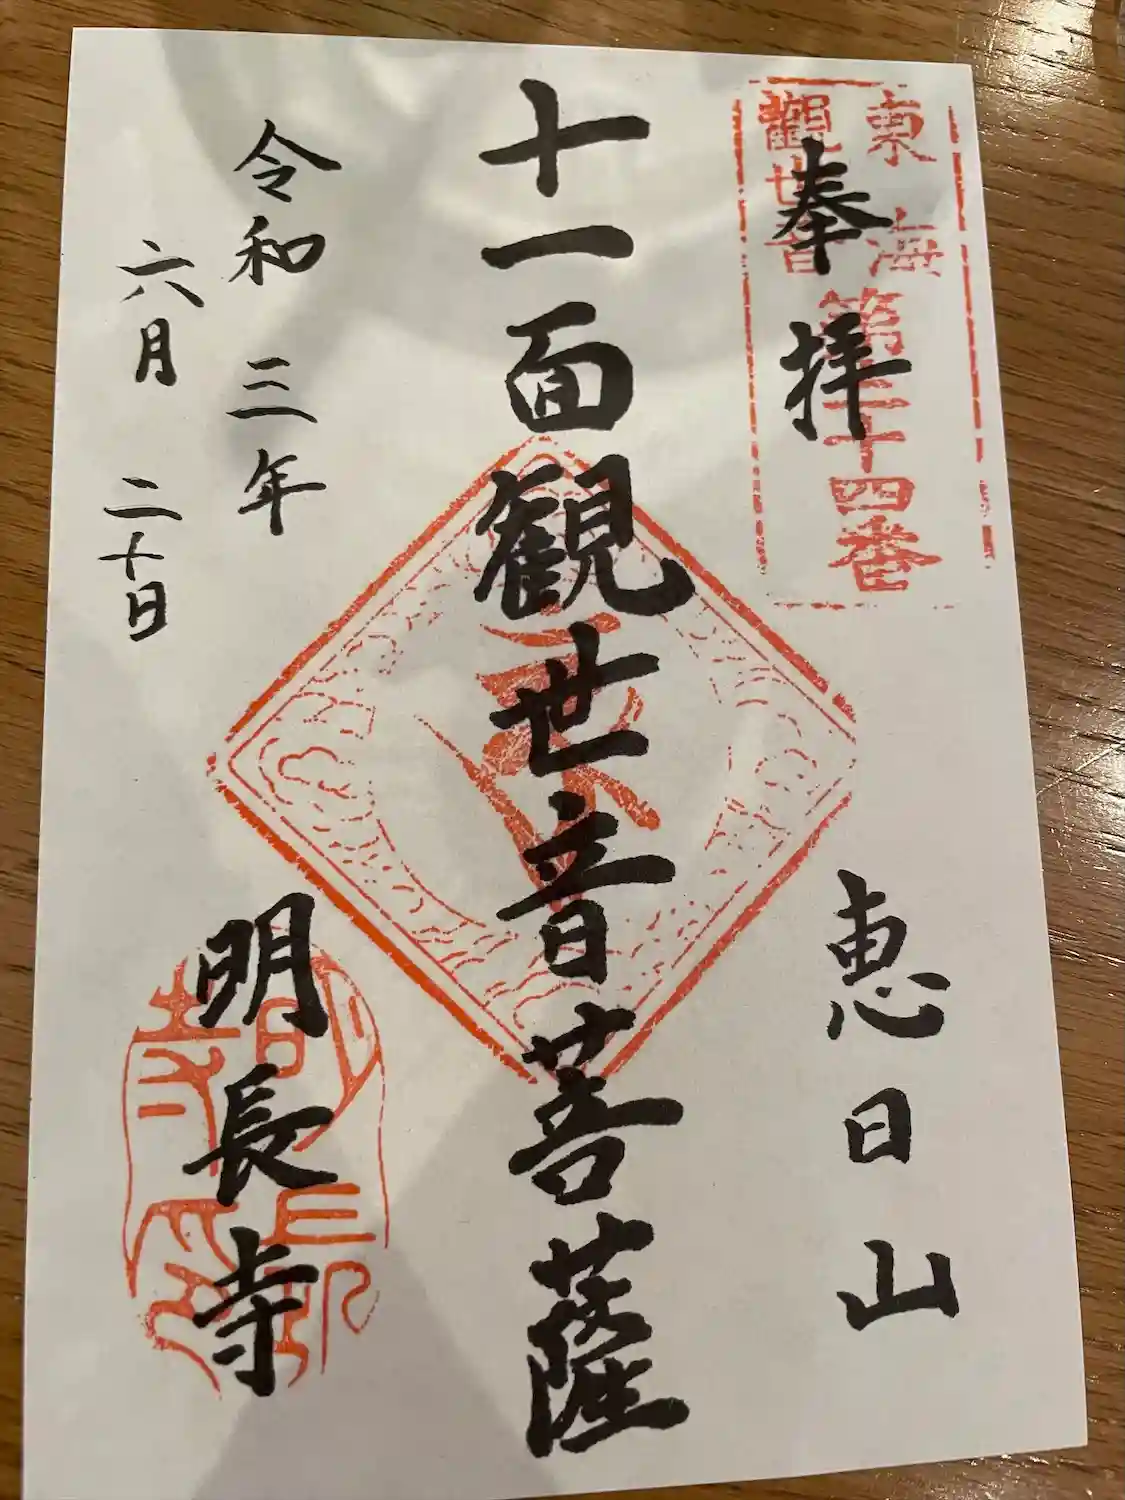 東海
観世音
第三十四番
奉拝
恵日山
十一面観世音菩薩
令和三年
六月二十日
明長寺